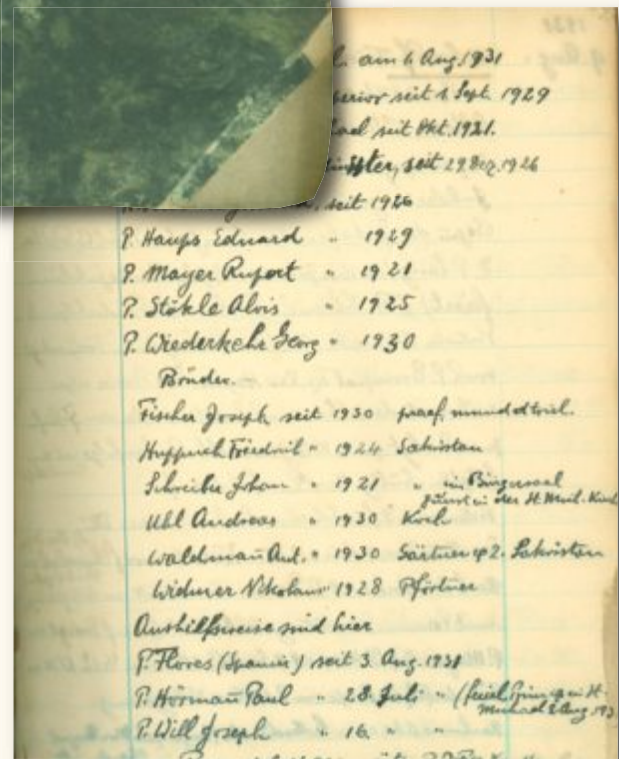 am 6 Aug. 1931
seit 1. Sept. 1929
seit Okt. 1921.
seit 29 Dez. 1926
seit 1926
P. Haups Eduard " 1929
P. Mayer Rupert " 1921
P. Stökle Alois " 1925
P. Wiederkehr Georg " 1930
Brüder.
Fischer Joseph seit 1930 praef. mund. et tricl.
Huppuch Friedrich " 1924 Sakristan
Schreiber Johan " 1921 " im Bürgersaal
in der St. Mich. Kirch
Uhl Andreas " 1930 Koch
Waldmañ Ant. " 1930 Gärtner 2. Sakristan
Widmer Nikolaus 1928 Pförtner
Aushilfsweise sind hier
P. Flores (Spanier) seit 3 Aug. 1931
P. Hörmañ Paul " 28. Juli " (feiert Primiz in St.
Michael 2 Aug. 193
P. Will Joseph " 16. " "